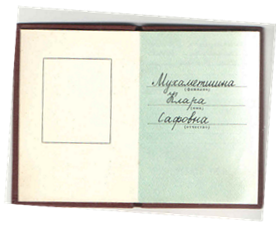 Мухаметшина
(фамилия)
Клара
(имя)
Сафовна
(отчество)